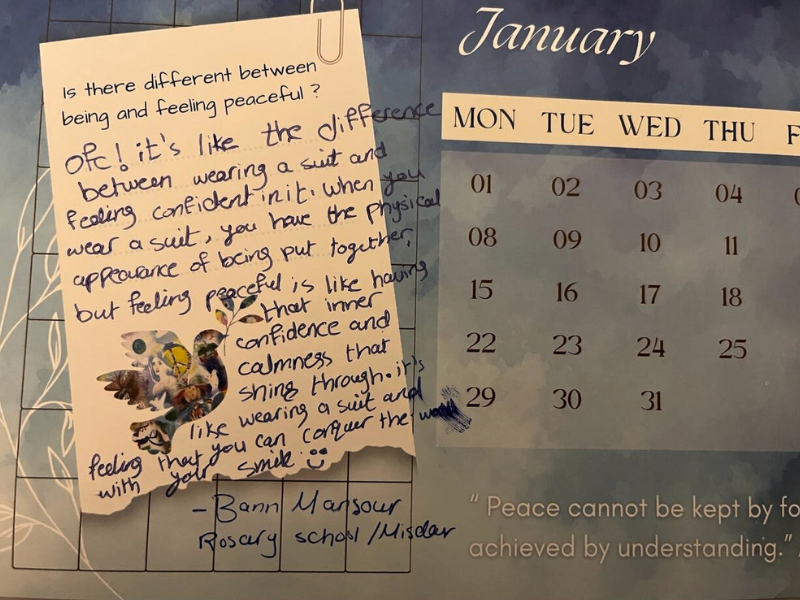 January
Is there different between
being and feeling peaceful ?
ofc! it's like the difference
between wearing a suit and
feeling confident in it. when you
wear a suit, you have the physical
appearance of being put together,
but feeling peaceful is like having
that inner
confidence and
calmness that
shing through. it's
like wearing a suit and
feeling that you can conquer the
with your smile
- Bann Mansour
Rosary school / Misdar
MON TUE WED THU F
01 02 03 04
08 09 10 11
15 16 17 18
22 23 24 25
29 30 31
" Peace cannot be kept by fo
achieved by understanding."